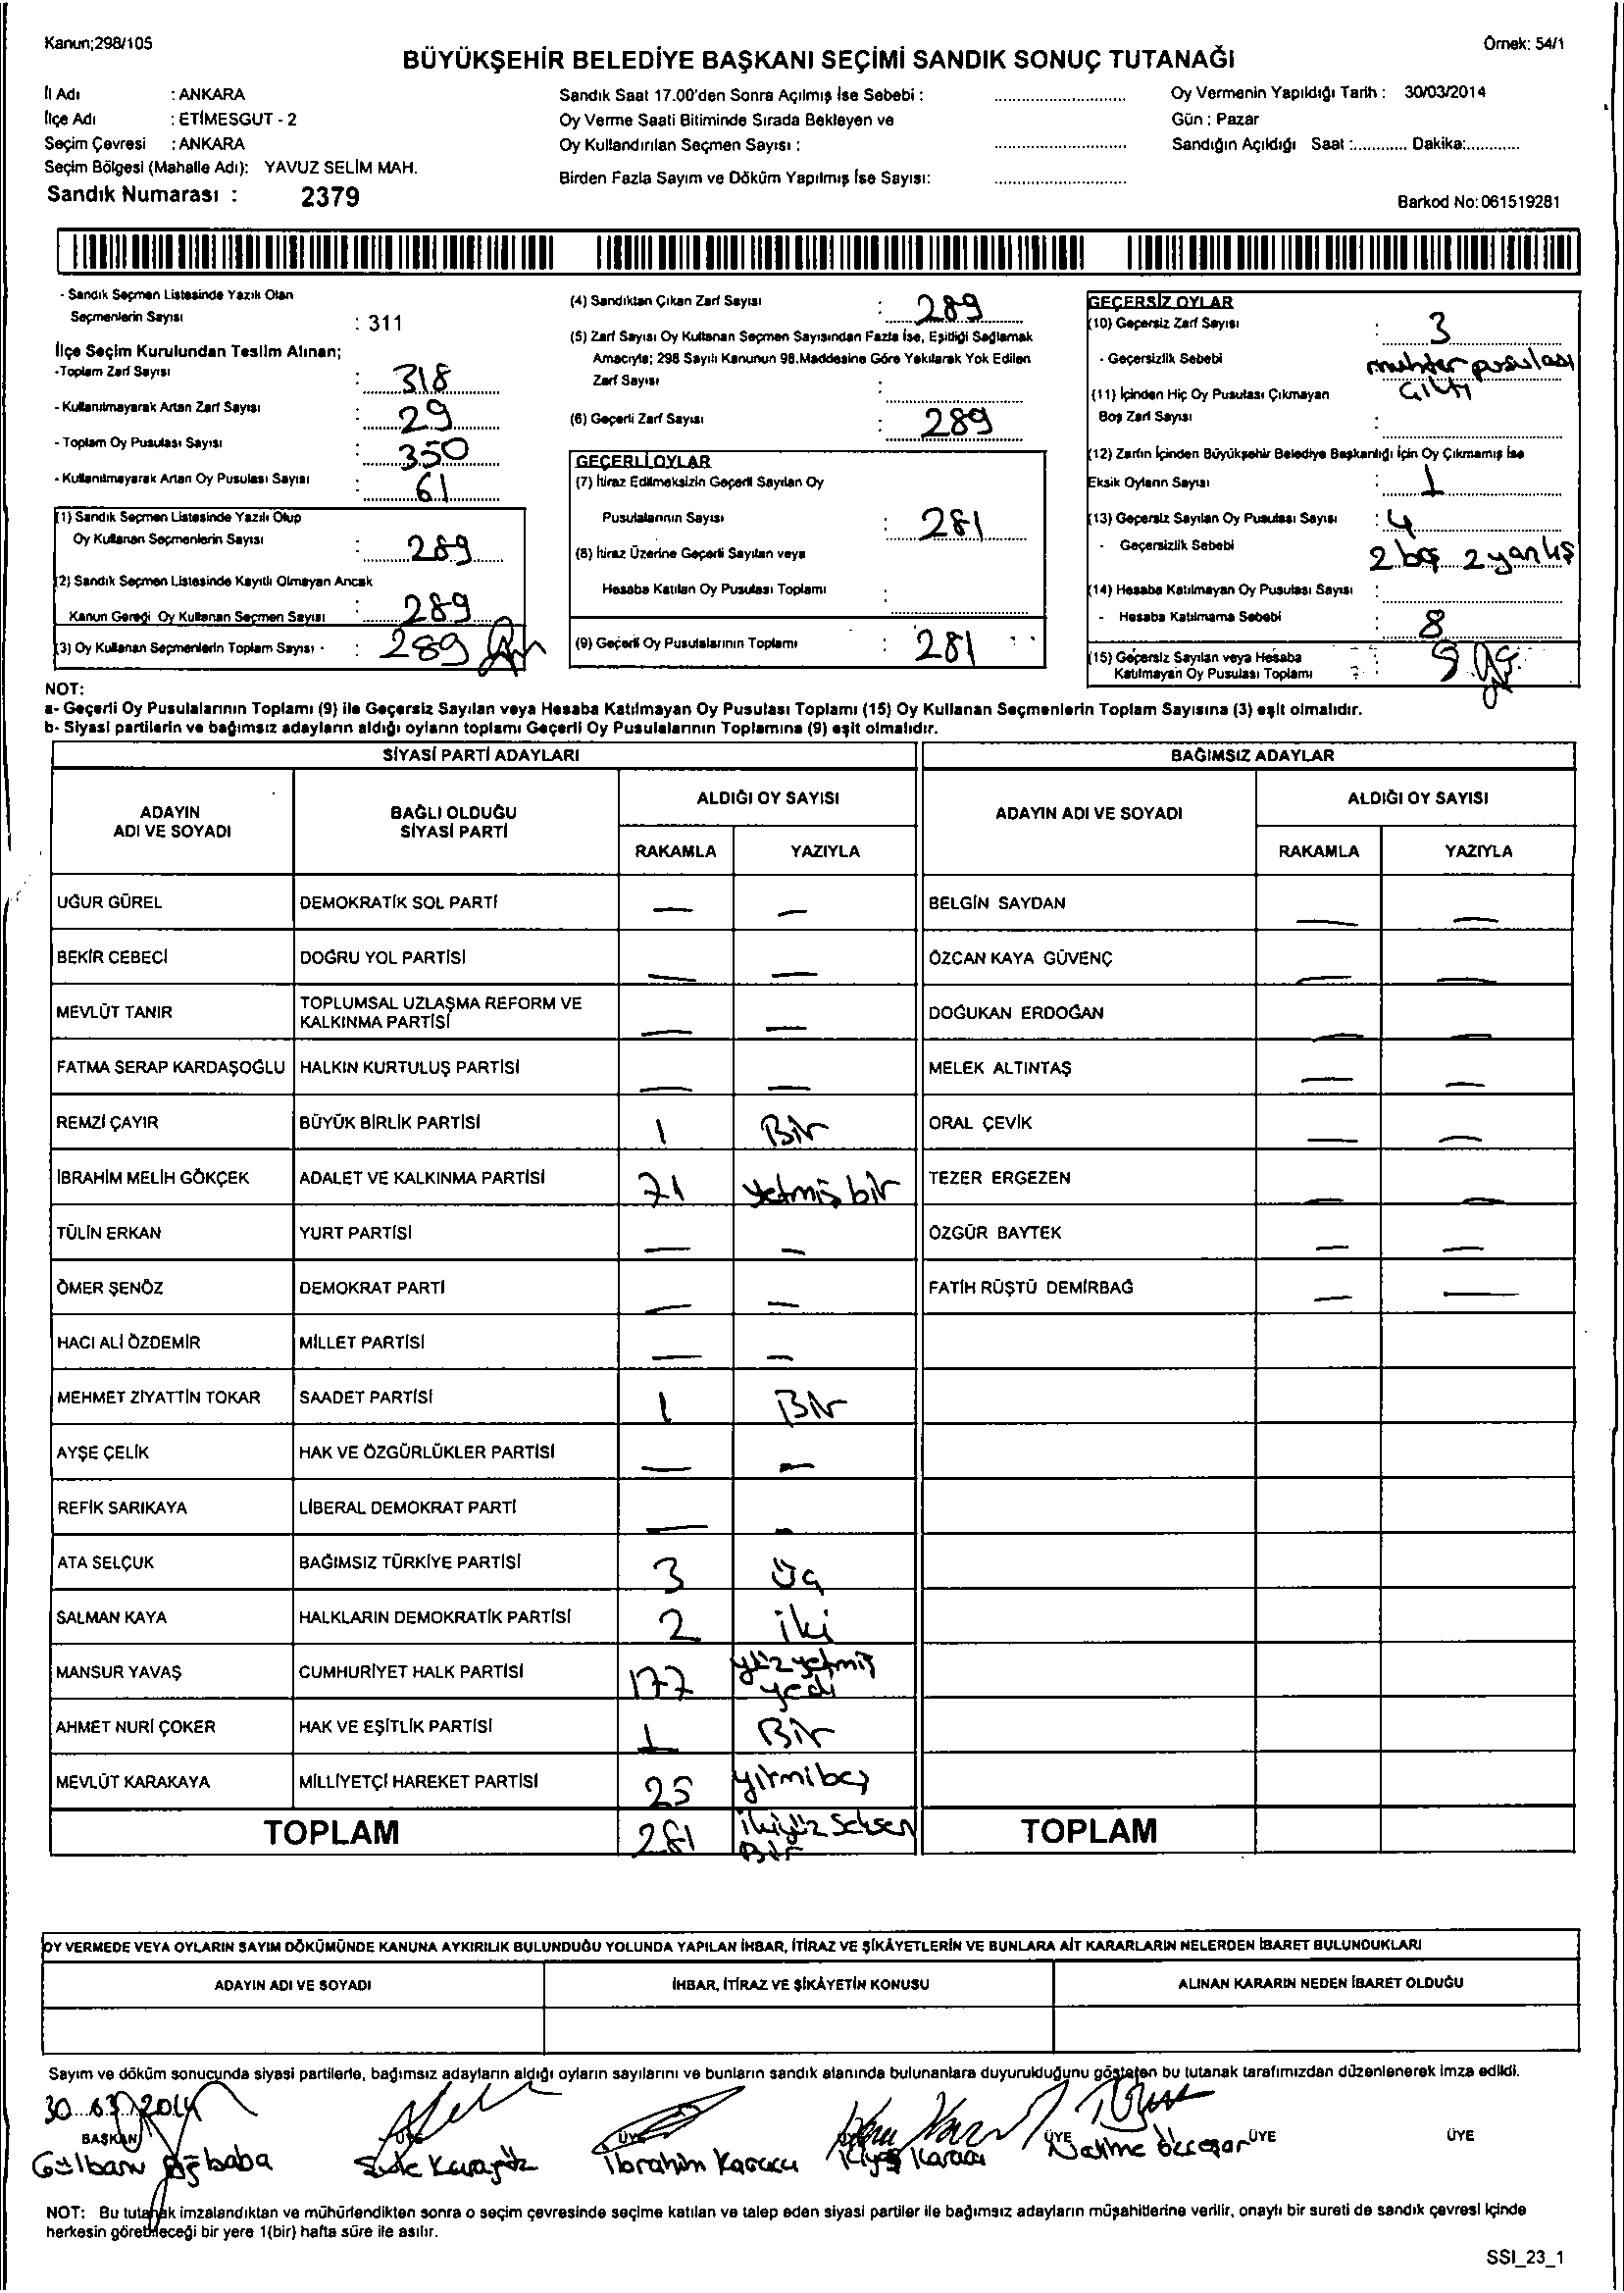 Kanun;298/105
Örnek: 54/1
BÜYÜKŞEHİR BELEDİYE BAŞKANI SEÇİMİ SANDIK SONUÇ TUTANAĞI
İl Adı : ANKARA
İlçe Adı : ETİMESGUT - 2
Seçim Çevresi : ANKARA
Seçim Bölgesi (Mahalle Adı): YAVUZ SELİM MAH.
Sandık Numarası : 2379
Sandık Saat 17.00'den Sonra Açılmış İse Sebebi :
Oy Verme Saati Bitiminde Sırada Bekleyen ve
Oy Kullandırılan Seçmen Sayısı :
Birden Fazla Sayım ve Döküm Yapılmış İse Sayısı:
Oy Vermenin Yapıldığı Tarih : 30/03/2014
Gün : Pazar
Sandığın Açıldığı Saat :............ Dakika:............
Barkod No:061519281
- Sandık Seçmen Listesinde Yazılı Olan
Seçmenlerin Sayısı : 311
İlçe Seçim Kurulundan Teslim Alınan;
-Toplam Zarf Sayısı : 318
- Kullanılmayarak Artan Zarf Sayısı : 29
- Toplam Oy Pusulası Sayısı : 350
- Kullanılmayarak Artan Oy Pusulası Sayısı : 61
(1) Sandık Seçmen Listesinde Yazılı Olup
Oy Kullanan Seçmenlerin Sayısı : 289
(2) Sandık Seçmen Listesinde Kayıtlı Olmayan Ancak
Kanun Gereği Oy Kullanan Seçmen Sayısı : 289
(3) Oy Kullanan Seçmenlerin Toplam Sayısı - : 289
(4) Sandıktan Çıkan Zarf Sayısı : 289
(5) Zarf Sayısı Oy Kullanan Seçmen Sayısından Fazla İse, Eşitliği Sağlamak
Amacıyla; 298 Sayılı Kanunun 98.Maddesine Göre Yakılarak Yok Edilen
Zarf Sayısı :
(6) Geçerli Zarf Sayısı : 289
GEÇERLİ OYLAR
(7) İtiraz Edilmeksizin Geçerli Sayılan Oy
Pusulalarının Sayısı : 281
(8) İtiraz Üzerine Geçerli Sayılan veya
Hesaba Katılan Oy Pusulası Toplamı :
(9) Geçerli Oy Pusulalarının Toplamı : 281
GEÇERSİZ OYLAR
(10) Geçersiz Zarf Sayısı : 3
- Geçersizlik Sebebi muhtar pusulası
çıktı
(11) İçinden Hiç Oy Pusulası Çıkmayan
Boş Zarf Sayısı :
(12) Zarfın İçinden Büyükşehir Belediye Başkanlığı İçin Oy Çıkmamış İse
Eksik Oyların Sayısı : 1
(13) Geçersiz Sayılan Oy Pusulası Sayısı : 4
- Geçersizlik Sebebi 2 boş 2 yanlış
(14) Hesaba Katılmayan Oy Pusulası Sayısı :
- Hesaba Katılmama Sebebi : 8
(15) Geçersiz Sayılan veya Hesaba
Katılmayan Oy Pusulası Toplamı
NOT:
a- Geçerli Oy Pusulalarının Toplamı (9) ile Geçersiz Sayılan veya Hesaba Katılmayan Oy Pusulası Toplamı (15) Oy Kullanan Seçmenlerin Toplam Sayısına (3) eşit olmalıdır.
b- Siyasi partilerin ve bağımsız adayların aldığı oyların toplamı Geçerli Oy Pusulalarının Toplamına (9) eşit olmalıdır.
SİYASİ PARTİ ADAYLARI
BAĞIMSIZ ADAYLAR
ADAYIN ADI VE SOYADI
BAĞLI OLDUĞU SİYASİ PARTİ
ALDIĞI OY SAYISI
RAKAMLA YAZIYLA
ADAYIN ADI VE SOYADI
ALDIĞI OY SAYISI
RAKAMLA YAZIYLA
UĞUR GÜREL DEMOKRATİK SOL PARTİ — — BELGİN SAYDAN — —
BEKİR CEBECİ DOĞRU YOL PARTİSİ — — ÖZCAN KAYA GÜVENÇ — —
MEVLÜT TANIR TOPLUMSAL UZLAŞMA REFORM VE KALKINMA PARTİSİ — — DOĞUKAN ERDOĞAN — —
FATMA SERAP KARDAŞOĞLU HALKIN KURTULUŞ PARTİSİ — — MELEK ALTINTAŞ — —
REMZİ ÇAYIR BÜYÜK BİRLİK PARTİSİ 1 Bir ORAL ÇEVİK — —
İBRAHİM MELİH GÖKÇEK ADALET VE KALKINMA PARTİSİ 71 yetmiş bir TEZER ERGEZEN — —
TÜLİN ERKAN YURT PARTİSİ — — ÖZGÜR BAYTEK — —
ÖMER ŞENÖZ DEMOKRAT PARTİ — — FATİH RÜŞTÜ DEMİRBAĞ — —
HACI ALİ ÖZDEMİR MİLLET PARTİSİ — —
MEHMET ZİYATTİN TOKAR SAADET PARTİSİ 1 Bir
AYŞE ÇELİK HAK VE ÖZGÜRLÜKLER PARTİSİ — —
REFİK SARIKAYA LİBERAL DEMOKRAT PARTİ — —
ATA SELÇUK BAĞIMSIZ TÜRKİYE PARTİSİ 3 üç
SALMAN KAYA HALKLARIN DEMOKRATİK PARTİSİ 2 iki
MANSUR YAVAŞ CUMHURİYET HALK PARTİSİ 177 yüz yetmiş yedi
AHMET NURİ ÇOKER HAK VE EŞİTLİK PARTİSİ 1 Bir
MEVLÜT KARAKAYA MİLLİYETÇİ HAREKET PARTİSİ 25 yirmibeş
TOPLAM 281 ikiyüz seksen Bir TOPLAM
OY VERMEDE VEYA OYLARIN SAYIM DÖKÜMÜNDE KANUNA AYKIRILIK BULUNDUĞU YOLUNDA YAPILAN İHBAR, İTİRAZ VE ŞİKÂYETLERİN VE BUNLARA AİT KARARLARIN NELERDEN İBARET BULUNDUKLARI
ADAYIN ADI VE SOYADI İHBAR, İTİRAZ VE ŞİKÂYETİN KONUSU ALINAN KARARIN NEDEN İBARET OLDUĞU
Sayım ve döküm sonucunda siyasi partilerle, bağımsız adayların aldığı oyların sayılarını ve bunların sandık alanında bulunanlara duyurulduğunu gösteren bu tutanak tarafımızdan düzenlenerek imza edildi.
30.03.2014
BAŞKAN ÜYE ÜYE ÜYE ÜYE ÜYE
Gülbanu İbrahim Karaca
NOT: Bu tutanak imzalandıktan ve mühürlendikten sonra o seçim çevresinde seçime katılan ve talep eden siyasi partiler ile bağımsız adayların müşahitlerine verilir, onaylı bir sureti de sandık çevresi içinde
herkesin görebileceği bir yere 1(bir) hafta süre ile asılır.
SSI_23_1